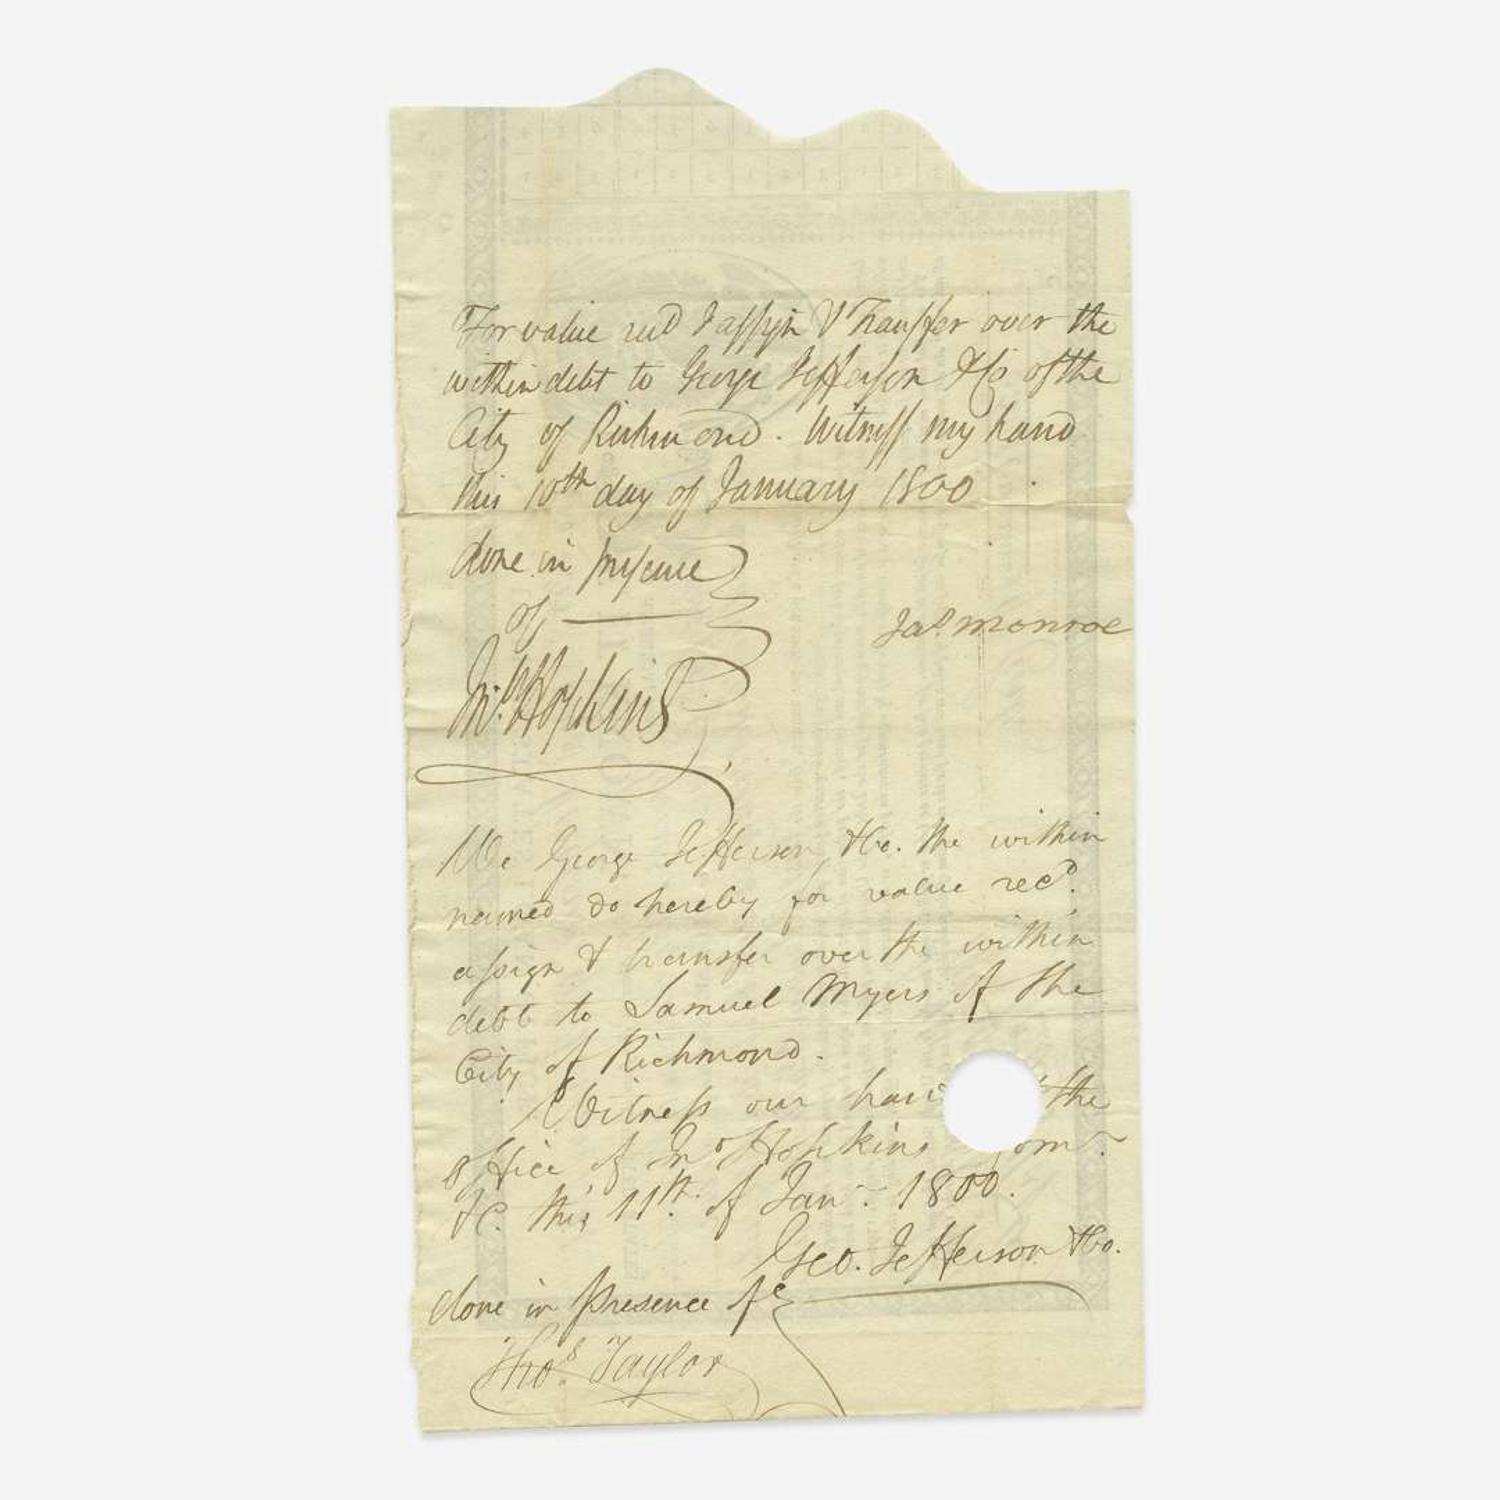 For value recd I assign & Transfer over the
within debt to George Jefferson & Co of the
City of Richmond. Witness my hand
this 10th day of January 1800
done in presence
of
Jas. Monroe
Jno. Hopkins
We George Jefferson & Co. the within
named do hereby for value recd.
assign & transfer over the within
debt to Samuel Myers of the
City of Richmond.
Witness our the
office of Jno Hopkins
&c. this 11th. of Jany. 1800.
Geo. Jefferson & Co.
done in presence of
Thos. Taylor